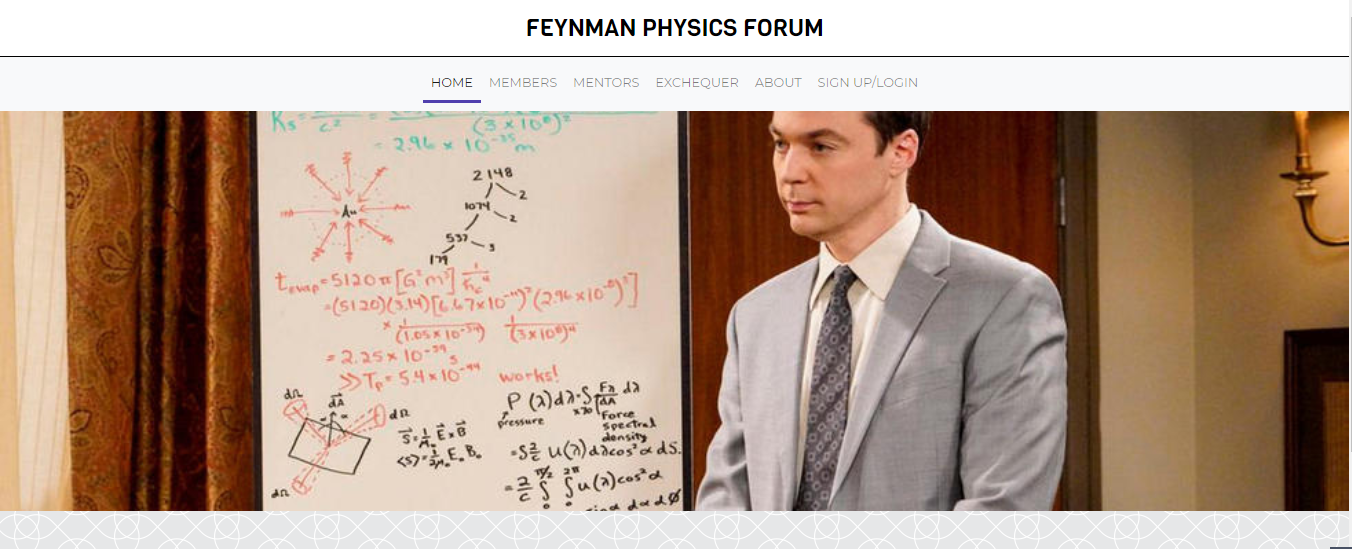 FEYNMAN PHYSICS FORUM
HOME MEMBERS MENTORS EXCHEQUER ABOUT SIGN UP/LOGIN
c² = (3×10⁸)²
= 2.96 × 10⁻³⁵ m
Au
2148
2
1074
2
537
3
179
t evap = 5120π[G²m³] 1/ħc⁴
=(5120)(3.14)[6.67×10⁻¹¹)²(2.96×10⁻⁸)³]
× 1/(1.05×10⁻³⁴) 1/(3×10⁸)⁴
= 2.25×10⁻³⁹ s
≫Tp = 5.4×10⁻⁴⁴ works!
dΩ
dA
dΩ
P(λ)dλ=S Fλ/dA dλ
pressure
Force
spectral
density
S=1/μ₀ E×B
<S>=1/2μ₀ E₀B₀
=S 2/c u(λ)dλcos²α dS
= 2/c ∫₀^π/2 ∫₀^2π u(λ)cos²α
dΩ
dα dØ